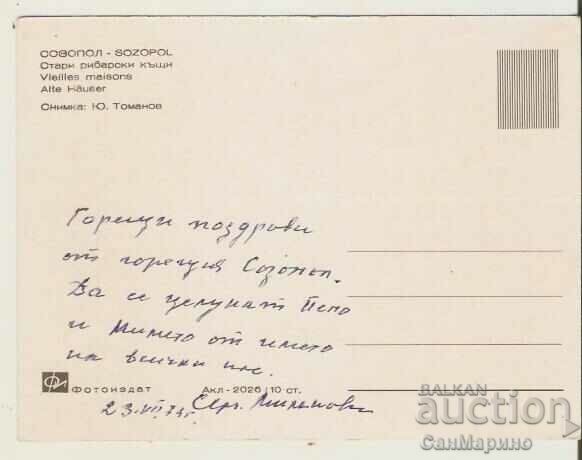 СОЗОПОЛ - SOZOPOL
Стари рибарски къщи
Vieilles maisons
Alte Häuser
Снимка: Ю. Томанов
Горещи поздрави
от горещия Созопол.
Да се целунат Пепо
и Мимето от името
на всички нас.
Фотоиздат Акл - 2026 | 10 ст.
23.VII.74г. Сем. Миланови
BALKAN
auction
СанМарино